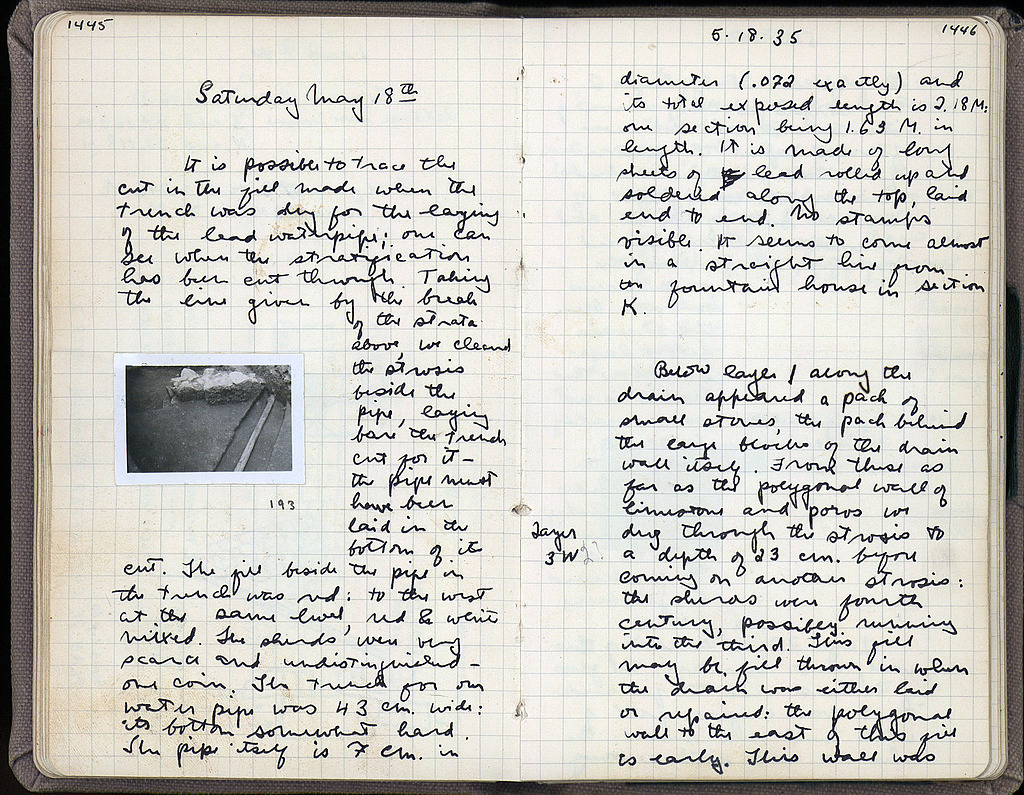 1445
Saturday May 18th
It is possible to trace the
cut in the fill made when the
trench was dug for the laying
of the lead waterpipe; one can
see when the stratification
has been cut through. Taking
the line given by the break
of the strata
above, we cleared
the strosis
beside the
pipe, laying
bare the trench
cut for it –
the pipe must
have been
laid in the
bottom of its
193
cut. The fill beside the pipe in
the trench was red: to the west
at the same level, red & white
mixed. The sherds were very
scarce and undistinguished –
one coin. The trench for our
water pipe was 43 cm. wide:
its bottom somewhat hard.
The pipe itself is 7 cm. in
1446
5.18.35
diameter (.072 exactly) and
its total exposed length is 2.18 M:
one section being 1.63 M. in
length. It is made of long
sheets of lead rolled up and
soldered along the top, laid
end to end. No stamps
visible. It seems to come almost
in a straight line from
the fountain house in section
K.
Below layer 1 along the
drain appeared a pack of
small stones, the pack behind
the large blocks of the drain
wall itself. From these as
far as the polygonal wall of
limestone and poros we
Layer
3 W
dug through the strosis to
a depth of 23 cm. before
coming on another strosis:
the sherds were fourth
century, possibly running
into the third. This fill
may be fill thrown in when
the drain was either laid
or repaired: the polygonal
wall to the east of this fill
is early. This wall was